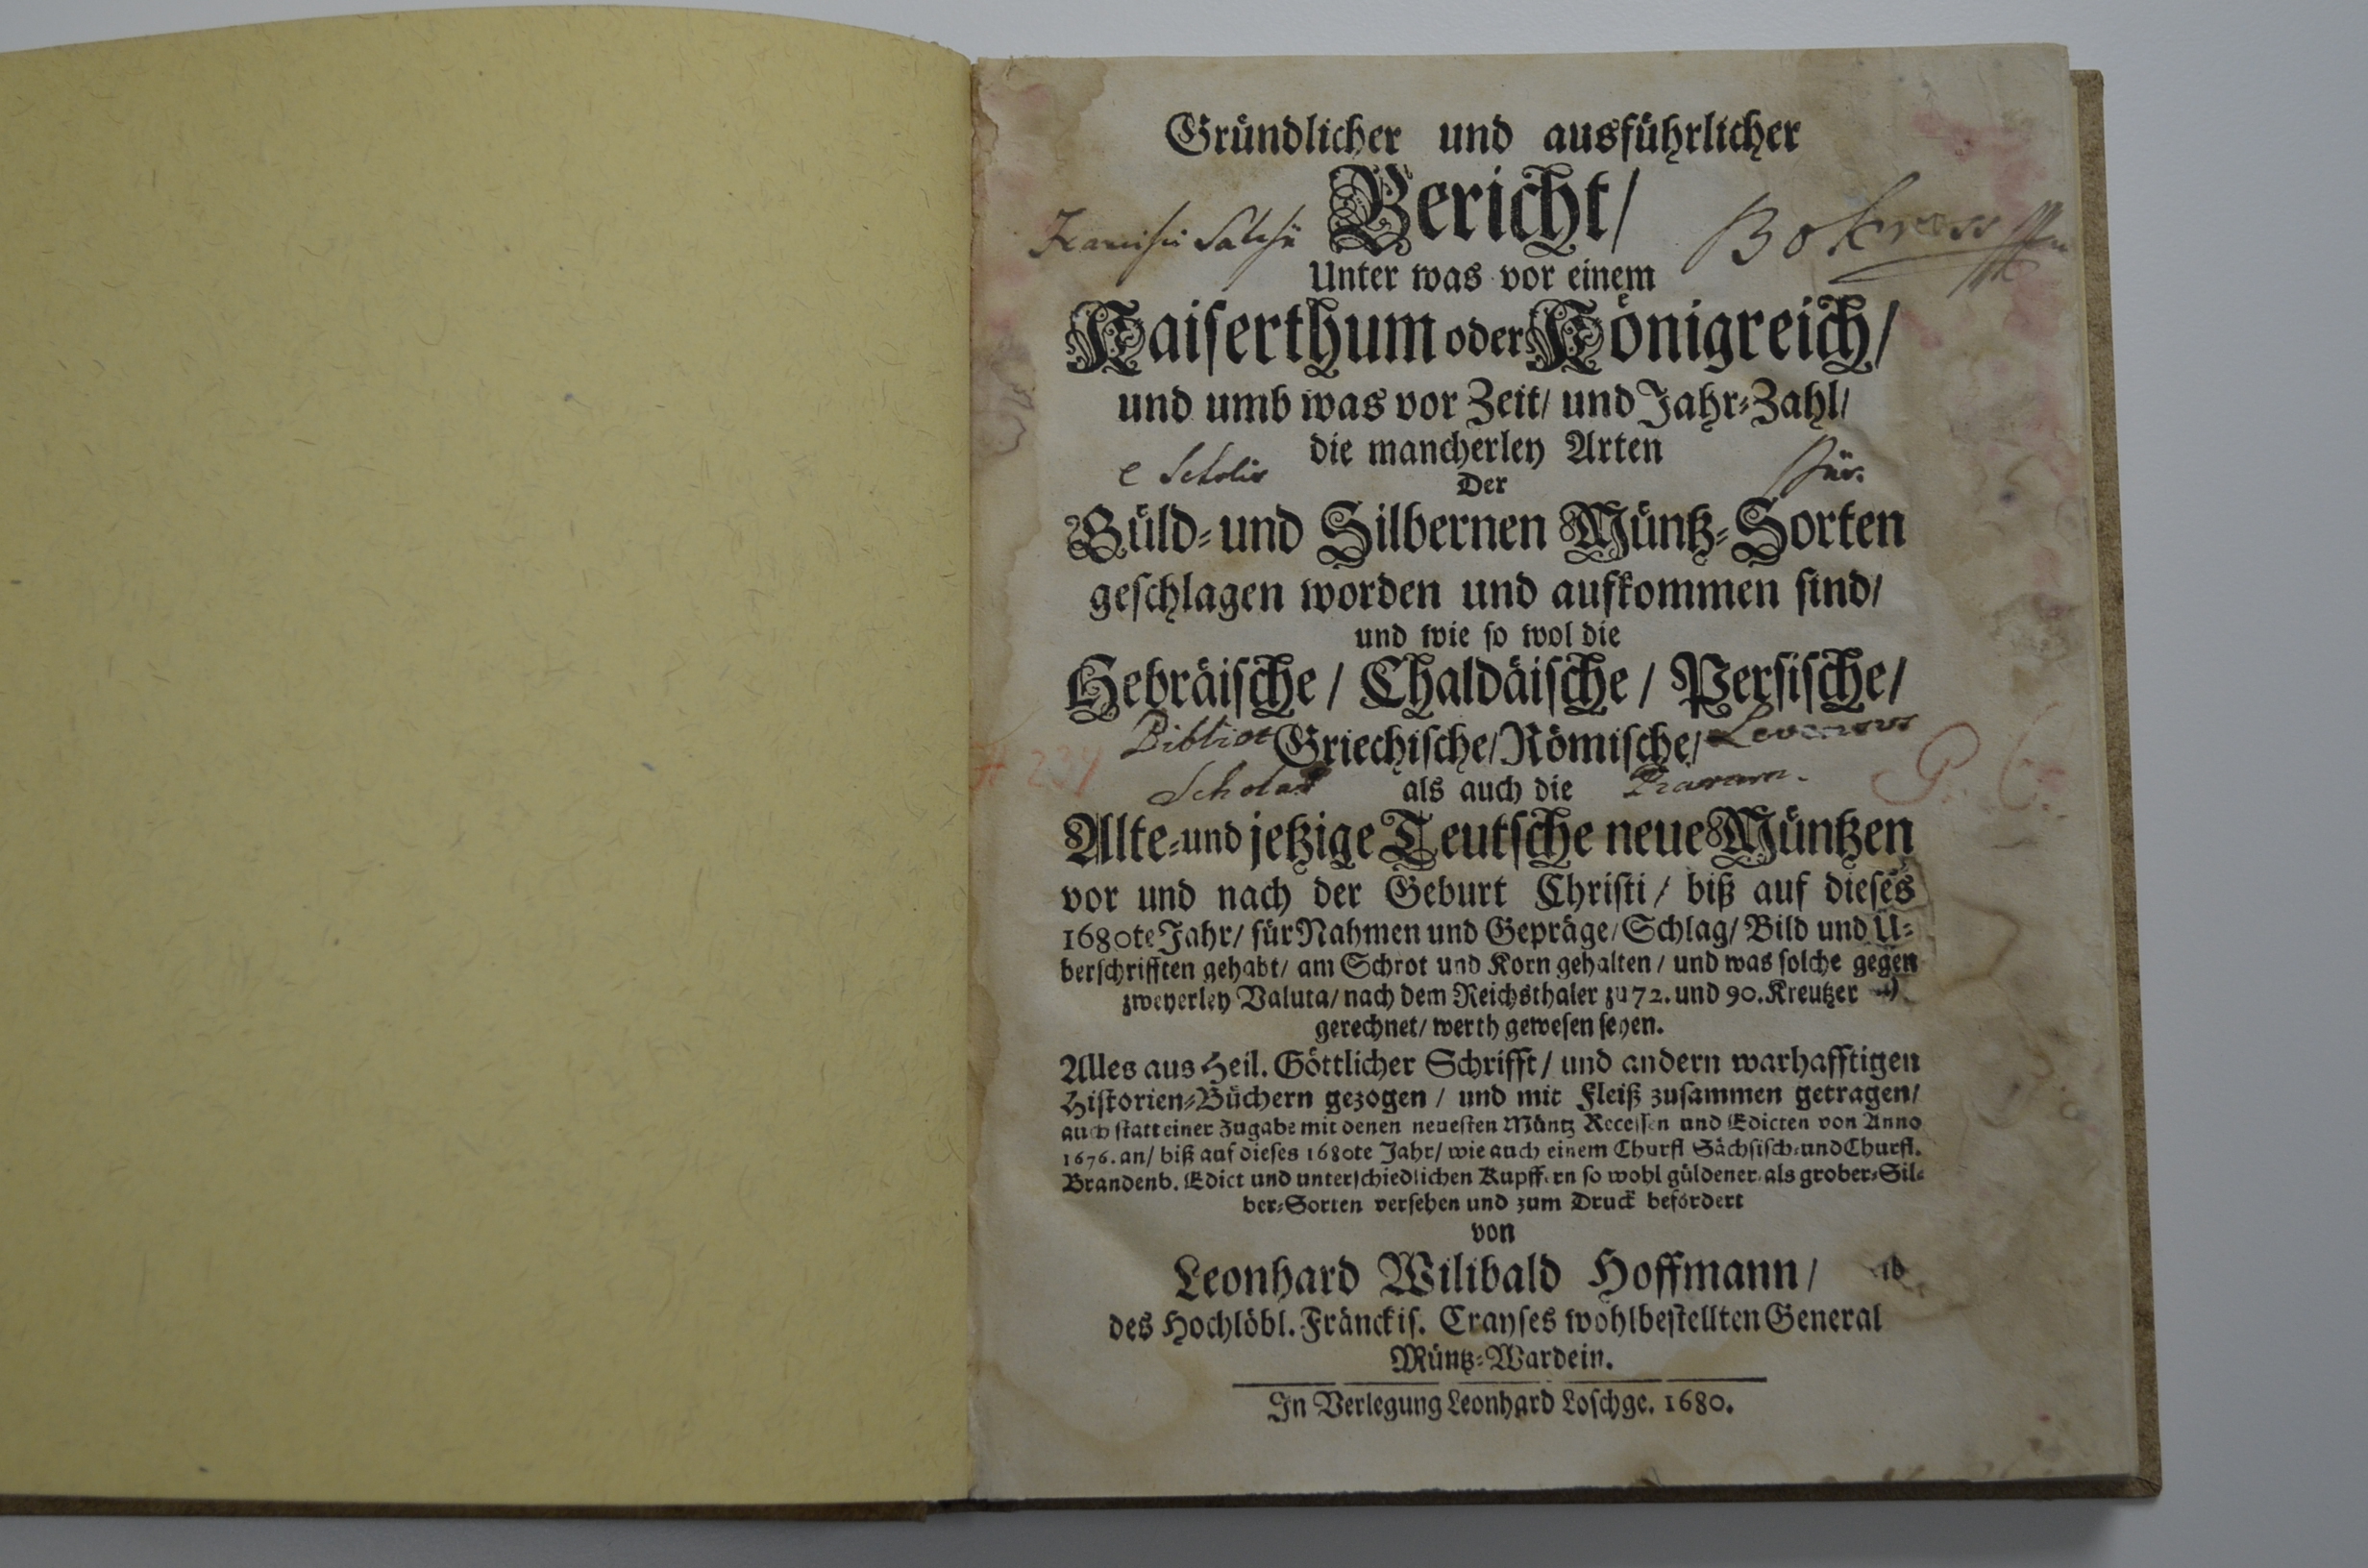 Gründlicher und ausführlicher
Bericht/
Unter was vor einem
Kaiserthum oder Königreich/
und umb was vor Zeit/ und Jahr-Zahl/
die mancherley Arten
e Scholis
Der
Güld- und Silbernen Müntz-Sorten
geschlagen worden und aufkommen sind/
und wie so wol die
Hebräische / Chaldäische / Persische/
Bibliot
Griechische/ Römische/
als auch die
Alte- und jetzige Teutsche neue Müntzen
vor und nach der Geburt Christi / biß auf dieses
1680te Jahr/ für Nahmen und Gepräge/ Schlag/ Bild und U-
berschrifften gehabt/ am Schrot und Korn gehalten / und was solche gegen
zweyerley Valuta/ nach dem Reichsthaler zu 72. und 90. Kreutzer
gerechnet/ werth gewesen seyen.
Alles aus Heil. Göttlicher Schrifft/ und andern warhafftigen
Historien-Büchern gezogen / und mit Fleiß zusammen getragen/
auch statt einer Zugabe mit denen neuesten Müntz Recessen und Edicten von Anno
1676. an/ biß auf dieses 1680te Jahr/ wie auch einem Churfl Sächsisch- und Churfl.
Brandenb. Edict und unterschiedlichen Kupffern so wohl güldener als grober-Sil-
ber-Sorten versehen und zum Druck befördert
von
Leonhard Wilibald Hoffmann/
des Hochlöbl. Fränckis. Crayses wohlbestellten General
Müntz-Wardein.
In Verlegung Leonhard Loschge. 1680.